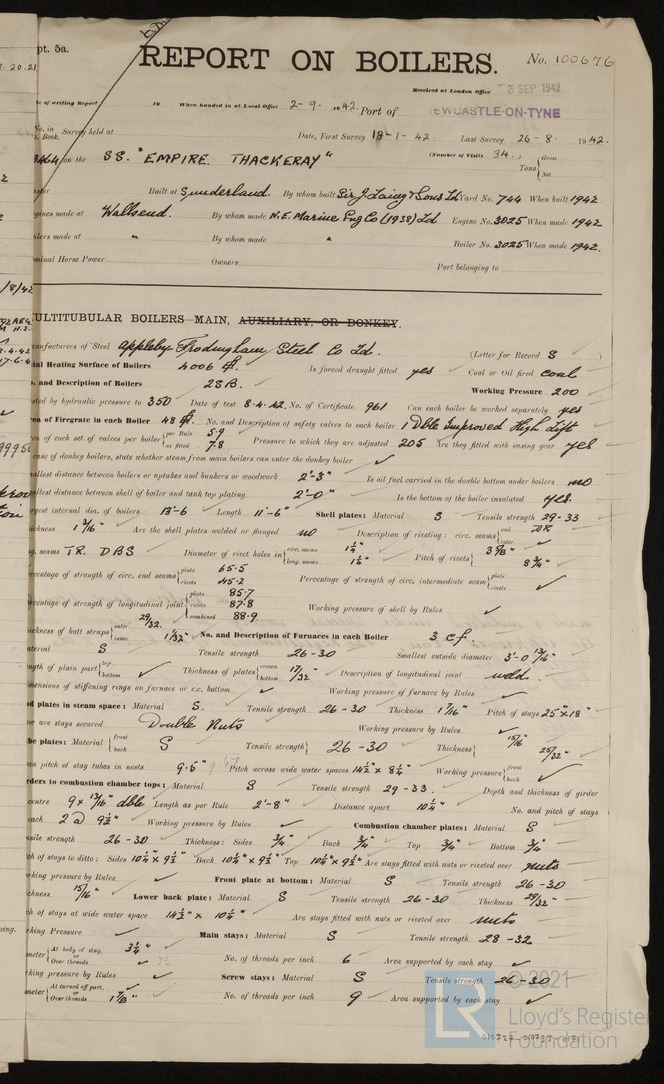 pt. 5a.
REPORT ON BOILERS.
No. 100676
Received at London Office 3 SEP 1942
te of writing Report 19 When handed in at Local Office 2-9-1942 Port of EWCASTLE-ON-TYNE
No. in Survey held at Date, First Survey 13-1-42. Last Survey 26-8-1942.
. Book.
3464 on the SS. "EMPIRE THACKERAY" (Number of Visits 34.) Tons { Gross Net
Built at Sunderland. By whom built Sir J. Laing & Sons Ld Yard No. 744 When built 1942
gines made at Wallsend. By whom made N.E. Marine Eng Co (1938) Ld Engine No. 3025 When made 1942
ilers made at " By whom made " Boiler No. 3025 When made 1942.
minal Horse Power Owners Port belonging to
ULTITUBULAR BOILERS—MAIN, AUXILIARY, OR DONKEY.
nufacturers of Steel Appleby Frodingham Steel Co Ld. (Letter for Record S )
tal Heating Surface of Boilers 4006 ft. Is forced draught fitted yes Coal or Oil fired coal
. and Description of Boilers 2SB. Working Pressure 200
sted by hydraulic pressure to 350 Date of test 8-4-42. No. of Certificate 961 Can each boiler be worked separately yes
ea of Firegrate in each Boiler 48 ft. No. and Description of safety valves to each boiler 1 Dble Improved High Lift
ea of each set of valves per boiler { per Rule 5.9 as fitted 7.8 Pressure to which they are adjusted 205 Are they fitted with easing gear yes
ase of donkey boilers, state whether steam from main boilers can enter the donkey boiler ✓
allest distance between boilers or uptakes and bunkers or woodwork 2'-3" Is oil fuel carried in the double bottom under boilers no
allest distance between shell of boiler and tank top plating 2'-0" Is the bottom of the boiler insulated yes.
rgest internal dia. of boilers 13'-6 Length 11'-6" Shell plates: Material S Tensile strength 29-33
ickness 1 3/16" Are the shell plates welded or flanged no Description of riveting: circ. seams { end DR inter. ✓
g. seams TR. DBS Diameter of rivet holes in { circ. seams 1 1/4" long. seams 1 1/4" Pitch of rivets { 3 7/8" 8 3/4"
rcentage of strength of circ. end seams { plate 65.5 rivets 45.2 Percentage of strength of circ. intermediate seam { plate rivets ✓
rcentage of strength of longitudinal joint { plate 85.7 rivets 87.8 combined 88.9 Working pressure of shell by Rules ✓
ickness of butt straps { outer 29/32 inner 1 1/32" No. and Description of Furnaces in each Boiler 3 cf.
aterial S Tensile strength 26-30 Smallest outside diameter 3'-0 13/16"
ngth of plain part { top bottom ✓ Thickness of plates { crown bottom 17/32" Description of longitudinal joint weld.
mensions of stiffening rings on furnace or c.c. bottom ✓ Working pressure of furnace by Rules ✓
d plates in steam space: Material S. Tensile strength 26-30 Thickness 1 1/16" Pitch of stays 25" x 18"
w are stays secured Double Nuts Working pressure by Rules ✓
be plates: Material { front back S Tensile strength { 26-30 Thickness { 15/16" 25/32"
an pitch of stay tubes in nests Pitch across wide water spaces 14 1/2" x 8 1/4" Working pressure { front back ✓
rders to combustion chamber tops: Material S Tensile strength 29-33. Depth and thickness of girder
centre 9 x 13/16" dble Length as per Rule 2'-8" Distance apart 10 1/4" No. and pitch of stays
each 2 @ 9 1/2" Working pressure by Rules ✓ Combustion chamber plates: Material S
nsile strength 26-30 Thickness: Sides 3/4" Back 3/4" Top 3/4" Bottom 3/4"
ch of stays to ditto: Sides 10 1/4" x 9 1/2" Back 10 1/4" x 9 1/2" Top 10 1/4" x 9 1/2" Are stays fitted with nuts or riveted over nuts
rking pressure by Rules ✓ Front plate at bottom: Material S Tensile strength 26-30
ckness 15/16" Lower back plate: Material S Tensile strength 26-30 Thickness 29/32"
ch of stays at wide water space 14 1/2" x 10 1/4" Are stays fitted with nuts or riveted over nuts
rking Pressure ✓ Main stays: Material S Tensile strength 28-32
meter { At body of stay, or Over threads 3 1/4" No. of threads per inch 6 Area supported by each stay ✓
rking pressure by Rules ✓ Screw stays: Material S Tensile strength 26-30
meter { At turned off part, or Over threads 1 7/8" No. of threads per inch 9 Area supported by each stay ✓
© 2021
LR Lloyd's Register
Foundation